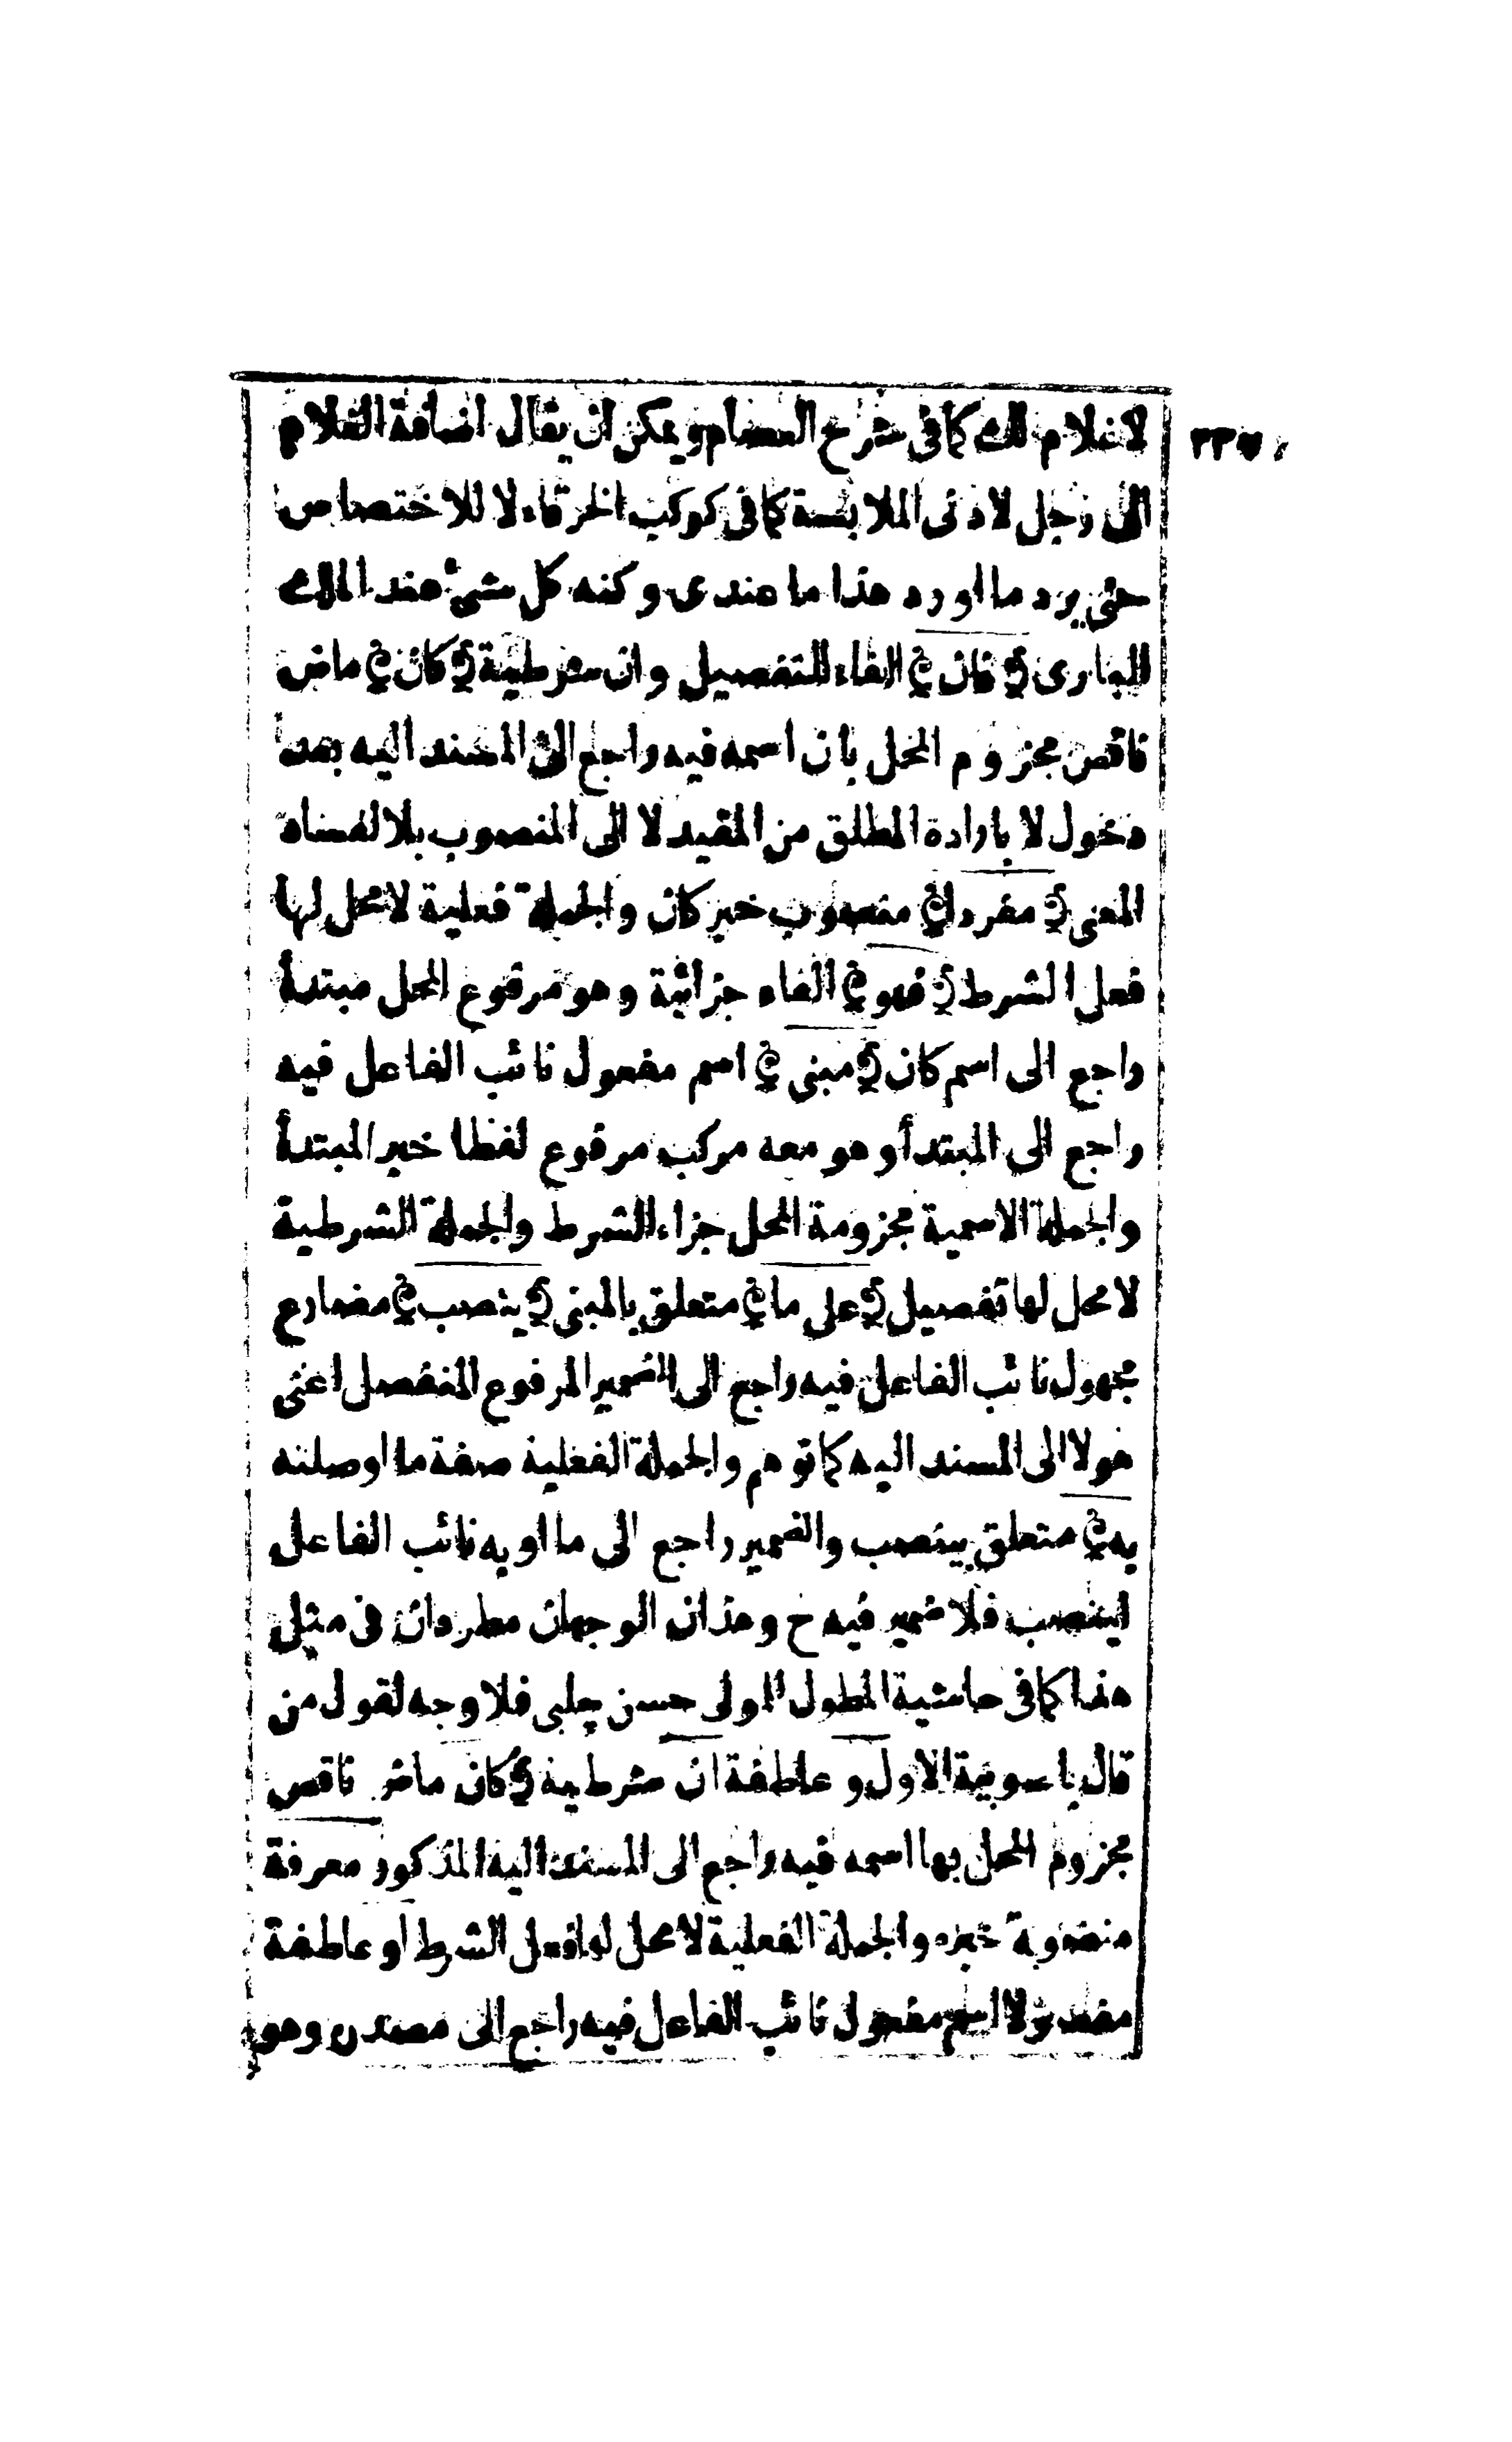 ٢٣٧
لاغلام لك كما فى شرح العصام ويمكن ان يقال اضافة الغلام
الى رجل لادنى الملابسة كما فى كوكب الخرقاء لا للاختصاص
حتى يرد ما اورد هذا ما عندى وكنه كل شئ عند الملك
البارى ﴿ فان ﴾ الفاء للتفصيل وان شرطية ﴿ كان ﴾ ماض
ناقص مجزوم المحل بان اسمه فيه راجع الى المسند اليه بعد
دخول لا بارادة المطلق من المقيد لا الى المنصوب بلا لفساد
المعنى ﴿ مفردا ﴾ منصوب خبر كان والجملة فعلية لامحل لها
فعل الشرط ﴿ فهو ﴾ الفاء جزائية وهو مرفوع المحل مبتدأ
راجع الى اسم كان ﴿ مبنى ﴾ اسم مفعول نائب الفاعل فيه
راجع الى المبتدأ وهو معه مركب مرفوع لفظا خبر المبتدأ
والجملة الاسمية مجزومة المحل جزاء الشرط والجملة الشرطية
لامحل لها تفصيل ﴿ على ما ﴾ متعلق بالمبنى ﴿ ينصب ﴾ مضارع
مجهول نائب الفاعل فيه راجع الى الضمير المرفوع المنفصل اعنى
هو لا الى المسند اليه كما توهم والجملة الفعلية صفة ما او صلته
به ﴾ متعلق بينصب والضمير راجع الى ما او به نائب الفاعل
لينصب فلا ضمير فيه ح وهذان الوجهان مطردان فى مثل
هذا كما فى حاشية المطول للمولى حسن چلبى فلا وجه لقول من
قال با الاول و عاطفة ان شرطية ﴿ كان ماض ناقص
مجزوم المحل بها اسمه فيه راجع الى المسند اليه المذكور معرفة
منصوبة خبره والجملة الفعلية لامحل لها فعل الشرط او عاطفة
اسم مفعول نائب الفاعل فيه راجع الى مصدره وهو